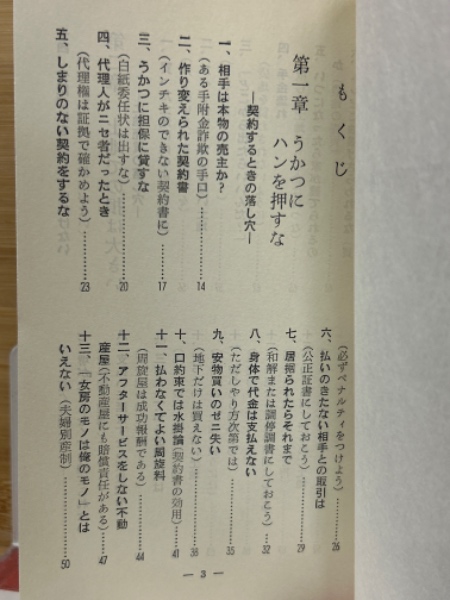 もくじ
第一章 うかつに
ハンを押すな
―契約するときの落し穴―
一、相手は本物の売主か?
(ある手附金詐欺の手口)…………14
二、作り変えられた契約書
(インチキのできない契約書に)…………17
三、うかつに担保に貸すな
(白紙委任状は出すな)…………20
四、代理人がニセ者だったとき
(代理権は証拠で確かめよう)…………23
五、しまりのない契約をするな
(必ずペナルティをつけよう)…………26
六、払いのきたない相手との取引は
(公正証書にしておこう)…………29
七、居据られたらそれまで
(和解または調停調書にしておこう)…………32
八、身体で代金は支払えない
(ただしやり方次第では)…………35
九、安物買いのゼニ失い
(地下だけは買えない)…………38
十、口約束では水掛論(契約書の効用)…………41
十一、払わなくてよい周旋料
(周旋屋は成功報酬である)…………44
十二、アフターサービスをしない不動
産屋(不動産屋にも賠償責任がある)…………47
十三、「女房のモノは俺のモノ」とは
いえない(夫婦別産制)…………50
― 3 ―